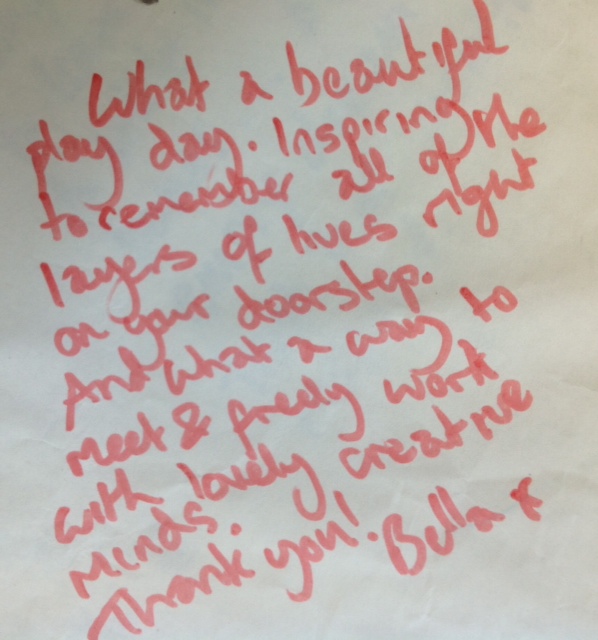 What a beautiful
play day. Inspiring the
to remember all of the
layers of hues right
on your doorstep.
And what a way to
meet & freely work
with lovely creative
minds.
Thank you! Bella x